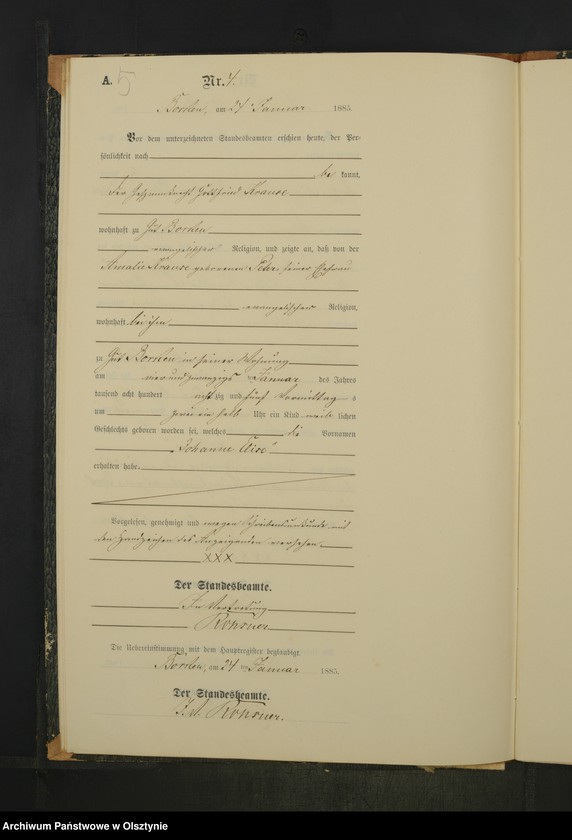 A. 5 Nr. 4.
Borken, am 24 ten Januar 1885.
Vor dem unterzeichneten Standesbeamten erschien heute, der Per-
sönlichkeit nach
be kannt,
der Gespannknecht Gottfried Krause
wohnhaft zu Gut Borken
evangelischer Religion, und zeigte an, daß von der
Amalie Krause geborenen Fehr, seiner Ehefrau
evangelischer Religion,
wohnhaft bei ihm
zu Gut Borken in seiner Wohnung
am vier und zwanzigs ten Januar des Jahres
tausend acht hundert acht zig und fünf Vormittag s
um zwei ein halb Uhr ein Kind weib lichen
Geschlechts geboren worden sei, welches die Vornamen
"Johanne Elise"
erhalten habe.
Vorgelesen, genehmigt und wegen Schreibensunkunde mit
den Handzeichen des Anzeigenden versehen.
XXX
Der Standesbeamte.
In Vertretung
Die Uebereinstimmung mit dem Hauptregister beglaubigt.
Borken, am 24 ten Januar 1885.
Der Standesbeamte.
Archiwum Państwowe w Olsztynie